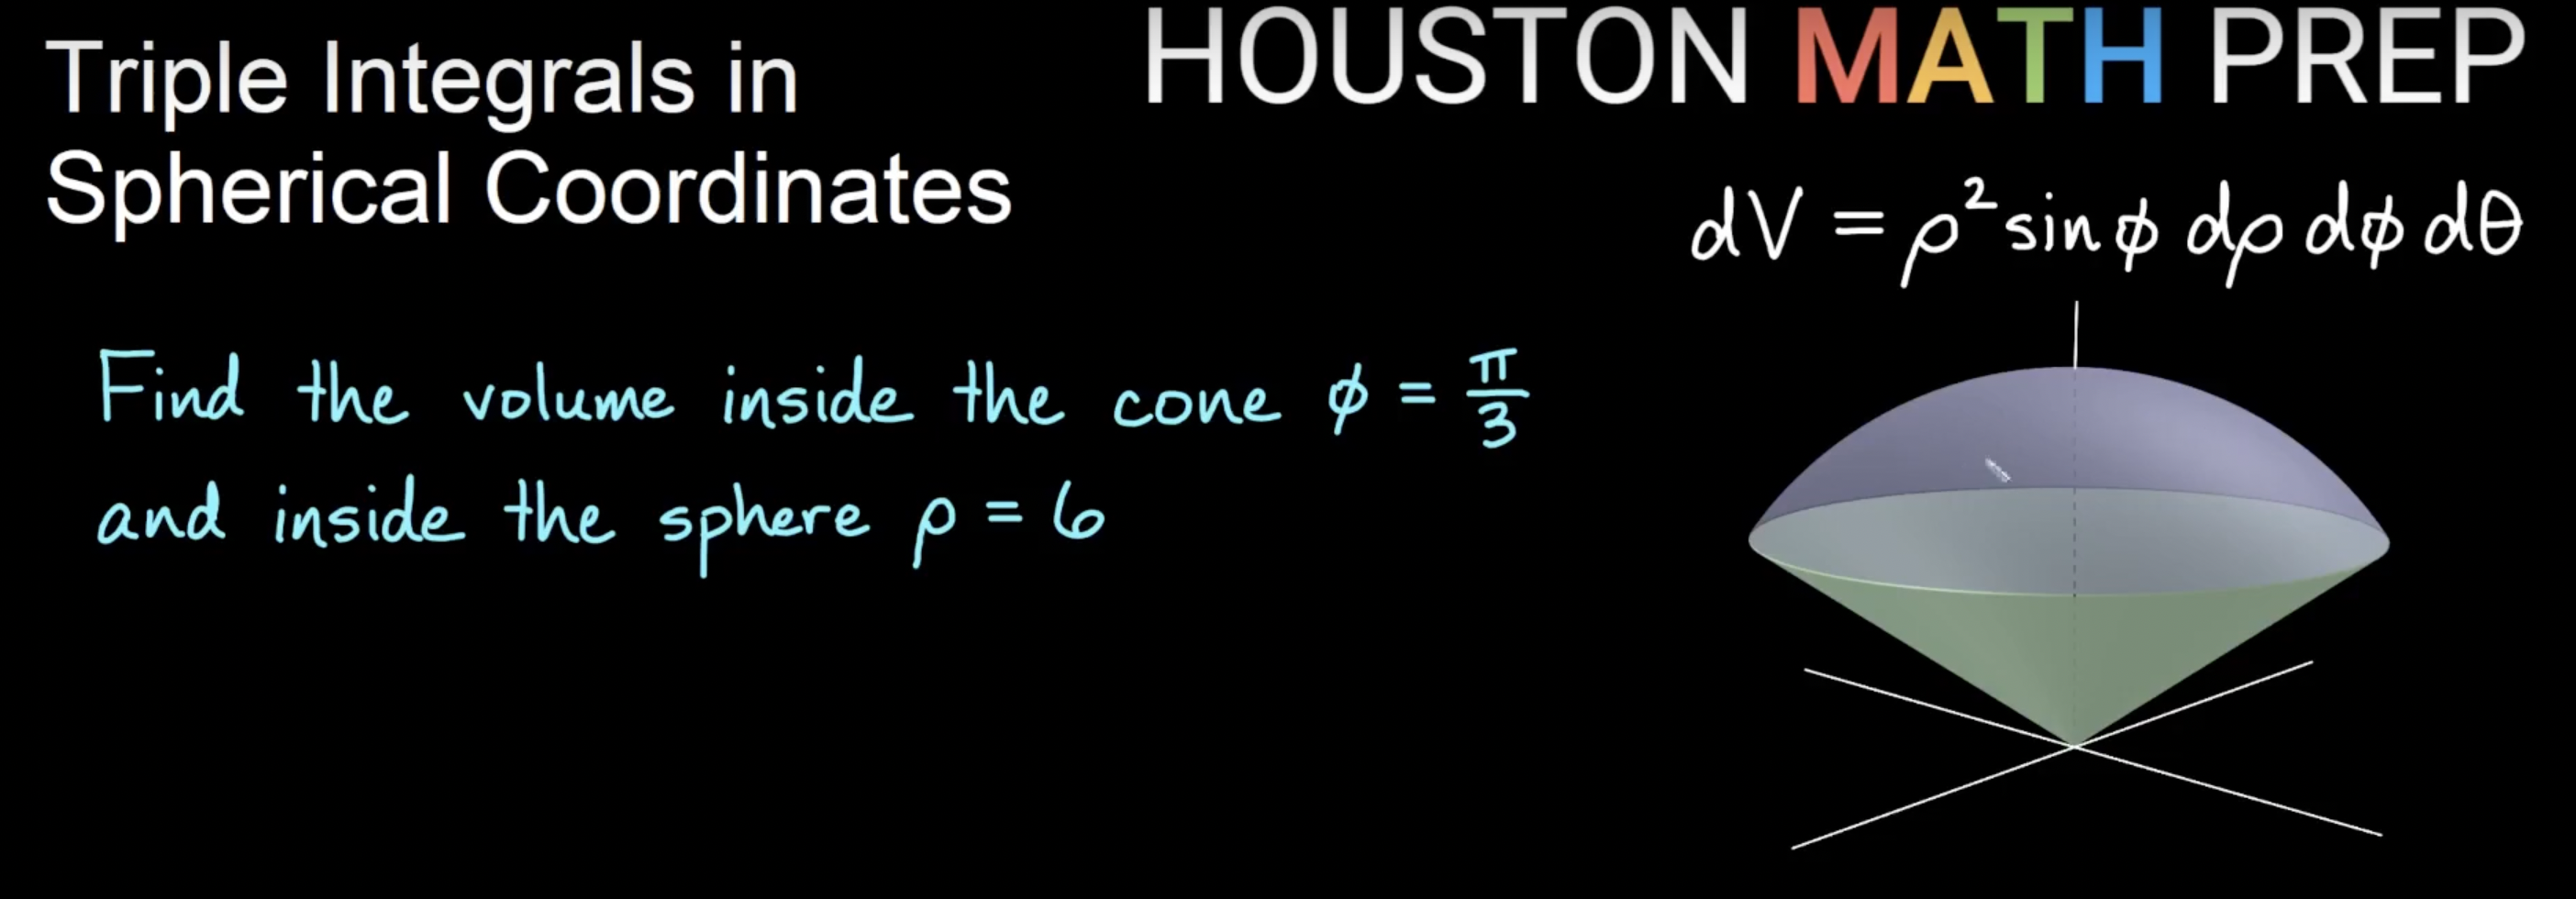 Triple Integrals in
Spherical Coordinates
HOUSTON MATH PREP
dV = ρ² sin ϕ dρ dϕ dθ
Find the volume inside the cone ϕ = π/3
and inside the sphere ρ = 6